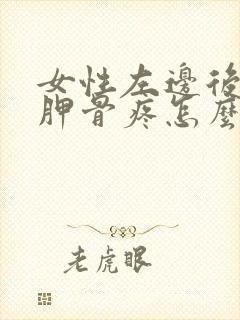 女性左邊後
胛骨疼怎麼
老虎眼